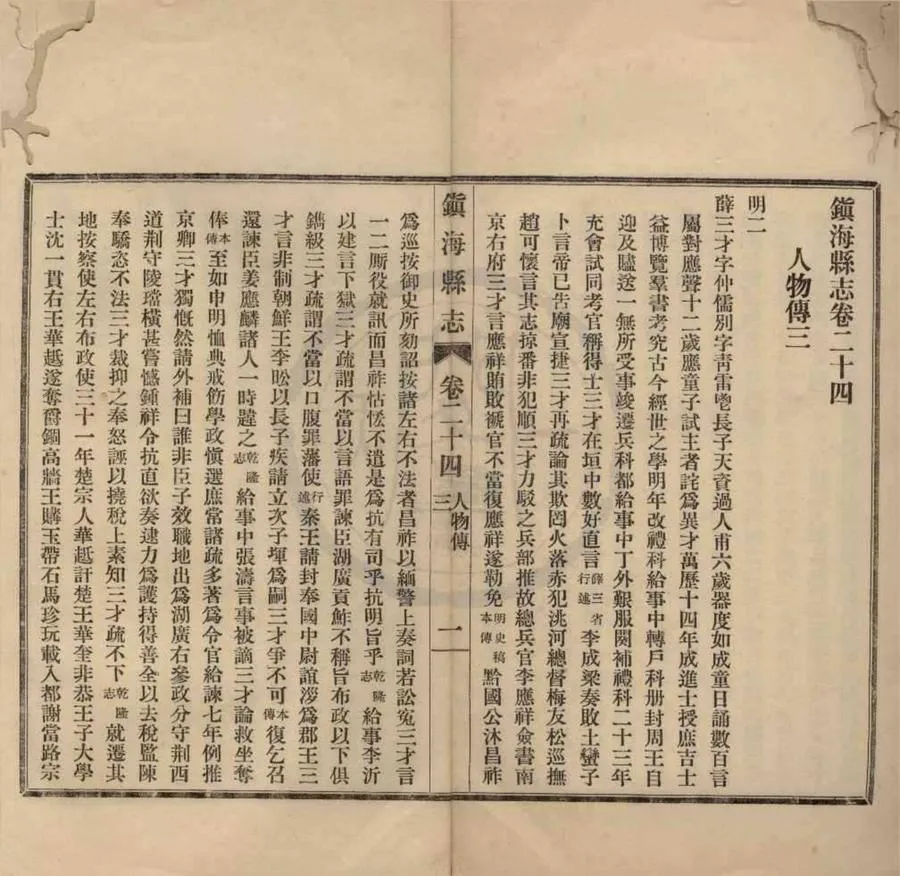 鎭海縣志卷二十四
人物傳三
明二
薛三才字仲儒別字靑雷甿長子天資過人甫六歲器度如成童日誦數百言
屬對應聲十二歲應童子試主者詫爲異才萬歷十四年成進士授庶吉士
益博覽羣書考究古今經世之學明年改禮科給事中轉戶科册封周王自
迎及贐送一無所受事竣遷兵科都給事中丁外艱服闋補禮科二十三年
充會試同考官稱得士三才在垣中數好直言薛三省行述李成梁奏敗土蠻子
卜言帝已吿廟宣捷三才再疏論其欺罔火落赤犯洮河總督梅友松巡撫
趙可懷言其志掠番非犯順三才力駁之兵部推故總兵官李應祥僉書南
京右府三才言應祥賄敗褫官不當復應祥遂勒免明史稿本傳黔國公沐昌祚
鎭海縣志
卷二十四
人物傳三
一
爲巡按御史所劾詔按諸左右不法者昌祚以緬警上奏詞若訟寃三才言
一二厮役就訊而昌祚怙恃不遣是爲抗有司乎抗明旨乎乾隆志給事李沂
以建言下獄三才疏謂不當以言語罪諫臣湖廣貢鮓不稱旨布政以下俱
鐫級三才疏謂不當以口腹罪藩使行述秦王請封奉國中尉誼漻爲郡王三
才言非制朝鮮王李昖以長子疾請立次子琿爲嗣三才爭不可本傳復乞召
還諫臣姜應麟諸人一時韙之乾隆志給事中張濤言事被謫三才論救坐奪
俸本傳至如申明恤典戒飭學政愼選庶常諸疏多著爲令官給諫七年例推
京卿三才獨慨然請外補曰誰非臣子效職地出爲湖廣右參政分守荆西
道荆守陵璫橫甚嘗憾鍾祥令抗直欲奏逮力爲護持得善全以去稅監陳
奉驕恣不法三才裁抑之奉怒誣以撓稅上素知三才疏不下乾隆志就遷其
地按察使左右布政使三十一年楚宗人華趆訐楚王華奎非恭王子大學
士沈一貫右王華趆遂奪爵錮高牆王購玉帶石馬珍玩載入都謝當路宗